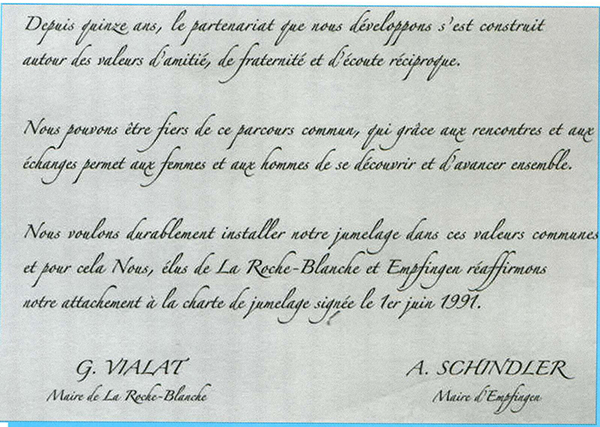 Depuis quinze ans, le partenariat que nous développons s'est construit
autour des valeurs d'amitié, de fraternité et d'écoute réciproque.
Nous pouvons être fiers de ce parcours commun, qui grâce aux rencontres et aux
échanges permet aux femmes et aux hommes de se découvrir et d'avancer ensemble.
Nous voulons durablement installer notre jumelage dans ces valeurs communes
et pour cela Nous, élus de La Roche-Blanche et Empfingen réaffirmons
notre attachement à la charte de jumelage signée le 1er juin 1991.
G. VIALAT A. SCHINDLER
Maire de La Roche-Blanche Maire d'Empfingen